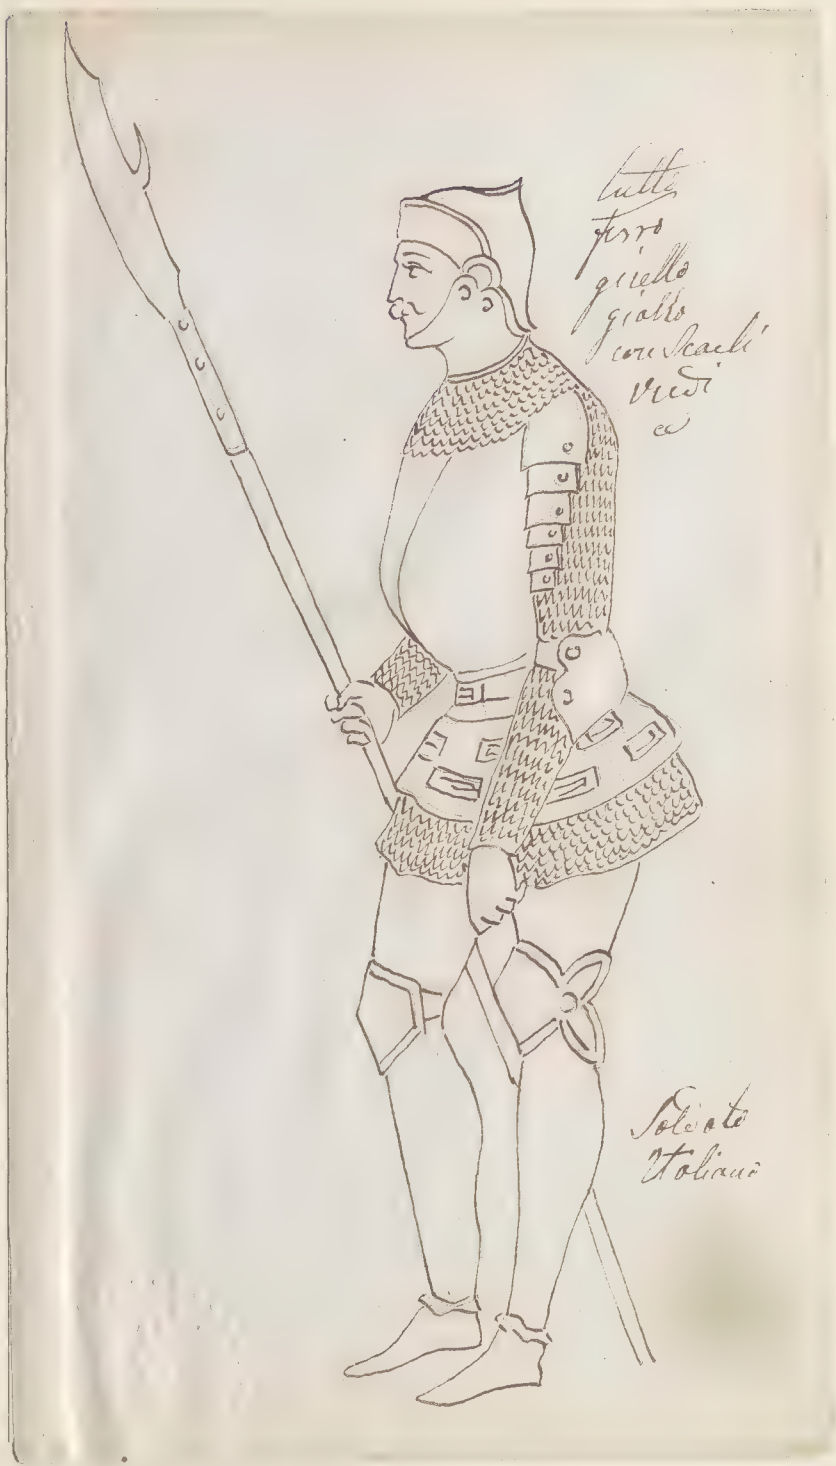 tutto
ferro
girello
giallo
con scachi
verdi
Soldato
Italiano